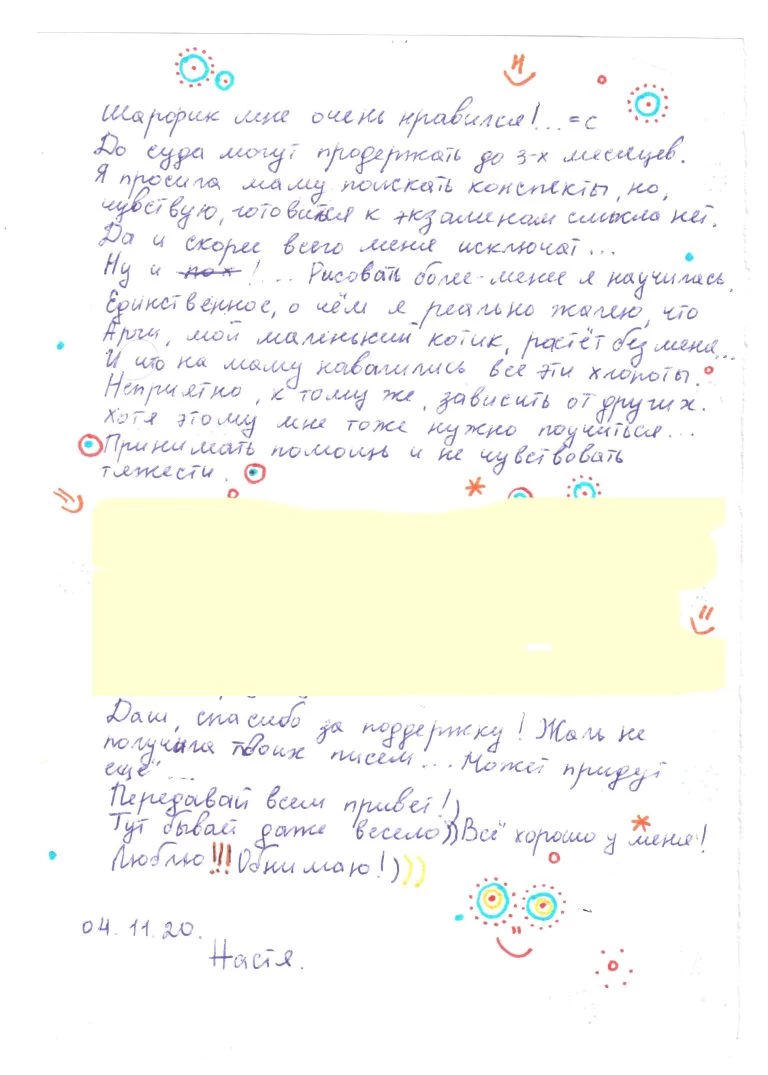 Шарфик мне очень нравился!... =с
До суда могут продержать до 3-х месяцев.
Я просила маму поискать конспекты, но,
чувствую, готовится к экзаменам смысла нет.
Да и скорее всего меня исключат...
Ну и пох!... Рисовать более-менее я научилась.
Единственное, о чём я реально жалею, что
Арчи, мой маленький котик, растёт без меня...
И что на маму навалились все эти хлопоты.
Неприятно, к тому же, зависить от других.
Хотя этому мне тоже нужно поучиться...
Принимать помощь и не чувствовать
тяжести.
Даш, спасибо за поддержку! Жаль не
получила твоих писем... Может придут
ещё...
Передавай всем привет!)
Тут бывай даже весело)) Всё хорошо у меня!
Люблю!!! Обнимаю!)))
04.11.20.
Настя.